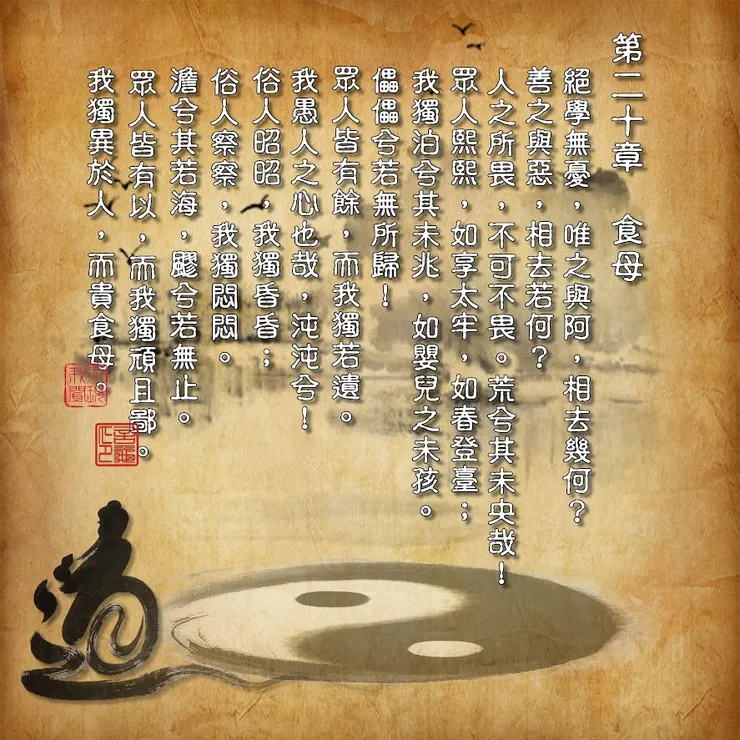 第二十章　食母
絕學無憂，唯之與阿，相去幾何？
善之與惡，相去若何？
人之所畏，不可不畏。荒兮其未央哉！
眾人熙熙，如享太牢，如春登臺；
我獨泊兮其未兆，如嬰兒之未孩。
儡儡兮若無所歸！
眾人皆有餘，而我獨若遺。
我愚人之心也哉，沌沌兮！
俗人昭昭，我獨昏昏；
俗人察察，我獨悶悶。
澹兮其若海，飂兮若無止。
眾人皆有以，而我獨頑且鄙。
我獨異於人，而貴食母。
道